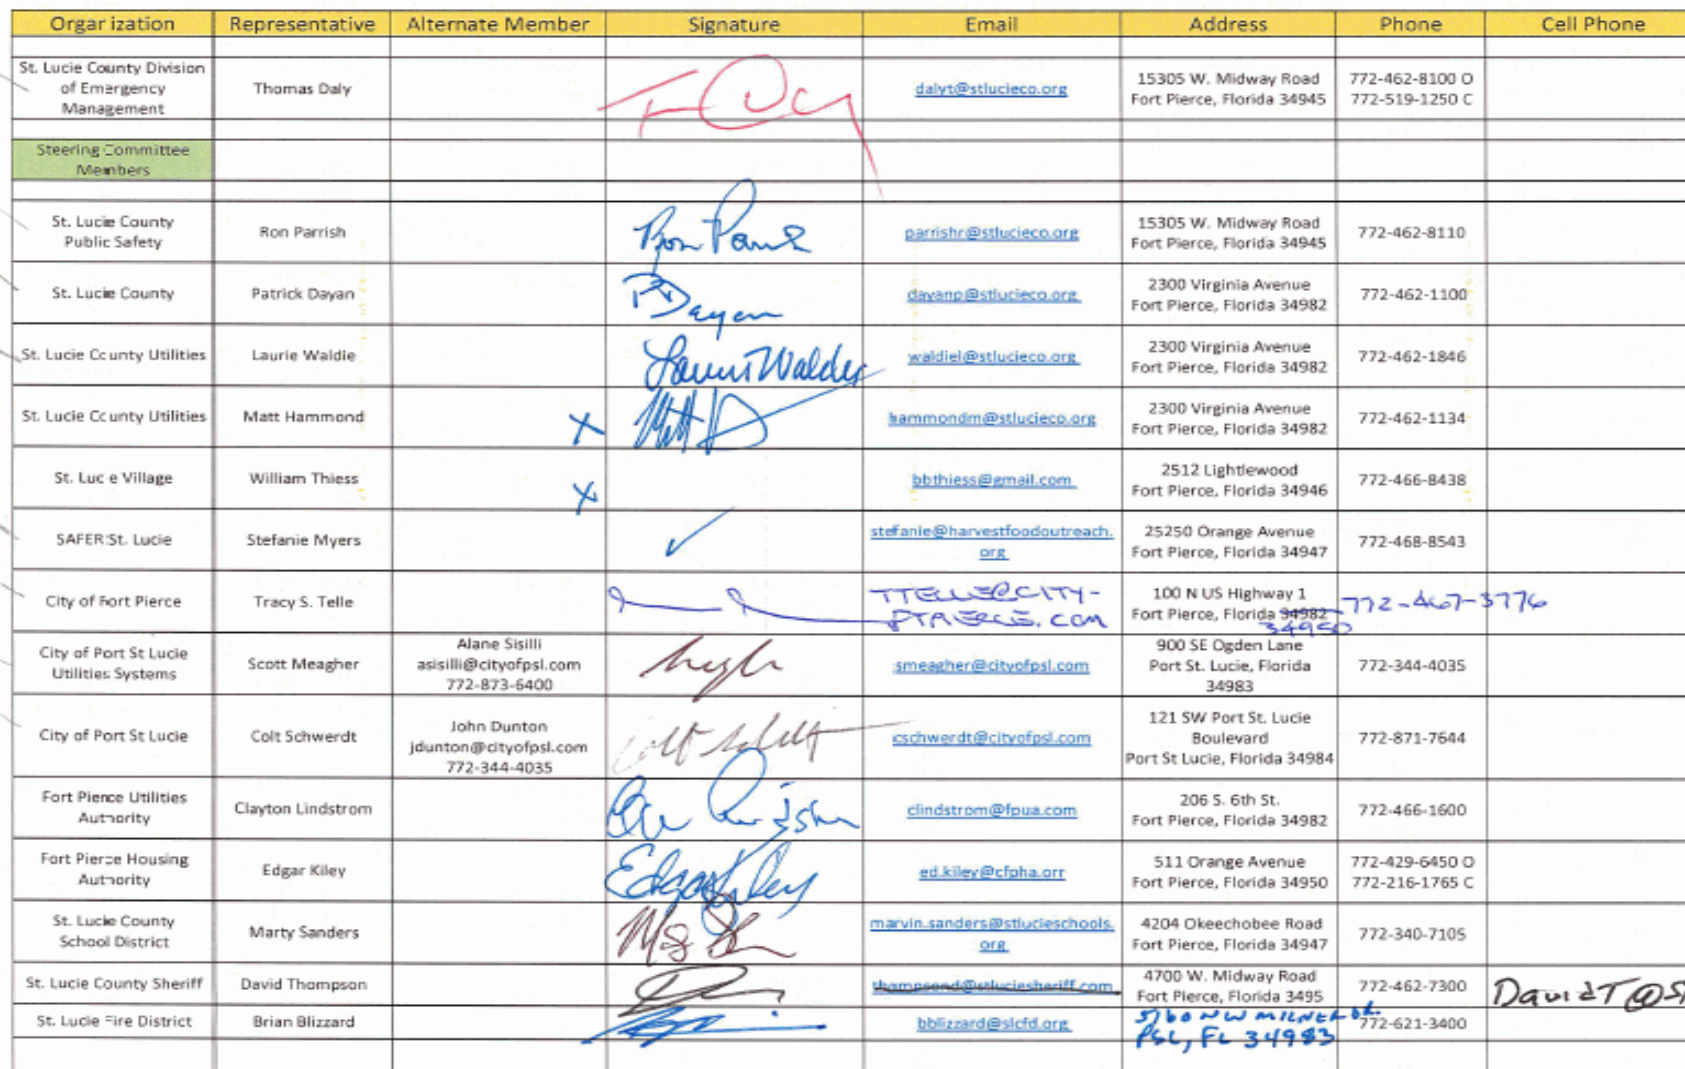 Organization Representative Alternate Member Signature Email Address Phone Cell Phone
St. Lucie County Division
of Emergency
Management
Thomas Daly
dalyt@stlucieco.org
15305 W. Midway Road
Fort Pierce, Florida 34945
772-462-8100 O
772-519-1250 C
Steering Committee
Members
St. Lucie County
Public Safety
Ron Parrish
parrishr@stlucieco.org
15305 W. Midway Road
Fort Pierce, Florida 34945
772-462-8110
St. Lucie County
Patrick Dayan
Dayan
dayanp@stlucieco.org
2300 Virginia Avenue
Fort Pierce, Florida 34982
772-462-1100
St. Lucie County Utilities
Laurie Waldie
waldiel@stlucieco.org
2300 Virginia Avenue
Fort Pierce, Florida 34982
772-462-1846
St. Lucie County Utilities
Matt Hammond
X
hammondm@stlucieco.org
2300 Virginia Avenue
Fort Pierce, Florida 34982
772-462-1134
St. Lucie Village
William Thiess
X
bbthiess@gmail.com
2512 Lightlewood
Fort Pierce, Florida 34946
772-466-8438
SAFER St. Lucie
Stefanie Myers
✓
stefanie@harvestfoodoutreach.
org
25250 Orange Avenue
Fort Pierce, Florida 34947
772-468-8543
City of Fort Pierce
Tracy S. Telle
100 N US Highway 1
Fort Pierce, Florida 34982
34950
772-467-3776
City of Port St Lucie
Utilities Systems
Scott Meagher
Alane Sisilli
asisilli@cityofpsl.com
772-873-6400
smeagher@cityofpsl.com
900 SE Ogden Lane
Port St. Lucie, Florida
34983
772-344-4035
City of Port St Lucie
Colt Schwerdt
John Dunton
jdunton@cityofpsl.com
772-344-4035
cschwerdt@cityofpsl.com
121 SW Port St. Lucie
Boulevard
Port St Lucie, Florida 34984
772-871-7644
Fort Pierce Utilities
Authority
Clayton Lindstrom
clindstrom@fpua.com
206 S. 6th St.
Fort Pierce, Florida 34982
772-466-1600
Fort Pierce Housing
Authority
Edgar Kiley
Edgar Kiley
ed.kiley@cfpha.orr
511 Orange Avenue
Fort Pierce, Florida 34950
772-429-6450 O
772-216-1765 C
St. Lucie County
School District
Marty Sanders
marvin.sanders@stlucieschools.
org
4204 Okeechobee Road
Fort Pierce, Florida 34947
772-340-7105
St. Lucie County Sheriff
David Thompson
thompsond@stluciesheriff.com
4700 W. Midway Road
Fort Pierce, Florida 3495
772-462-7300
DavidT@S
St. Lucie Fire District
Brian Blizzard
bblizzard@slcfd.org
5160 NW MILNER DR
PSL, FL 34983
772-621-3400